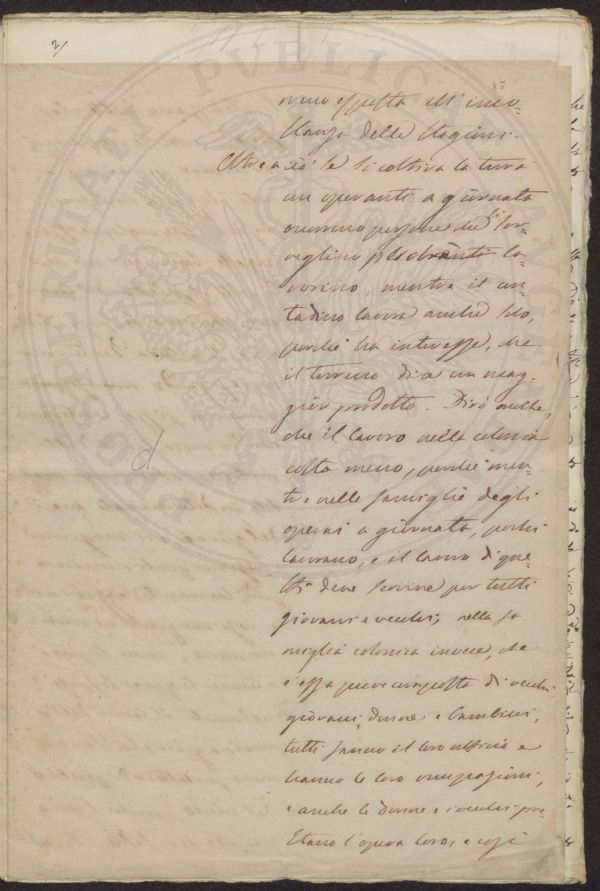 2/
17
meno esposta all'inco-
stanza delle stagioni.
Oltre a ciò se si coltiva la terra
con operanti a giornata
occorrono persone che li sor-
veglino perché la-
vorino, mentre il con-
tadino lavora anche solo,
perché ha interesse, che
il terreno dia un mag-
gior prodotto. Dirò anche,
che il lavoro nella colonia
costa meno, perché men-
tre nelle famiglie degli
operai a giornata, pochi
lavorano, e il lavoro di que-
sti deve servire per tutti
giovani e vecchi; nella fa
miglia colonica invece, che
è essa pure composta di vecchi
giovani, donne e bambini,
tutti fanno il loro ufficio e
hanno le loro occupazioni,
e anche le donne e i vecchi pre
stano l'opera loro, e così
d
PROSPERITATI PUBLICAE